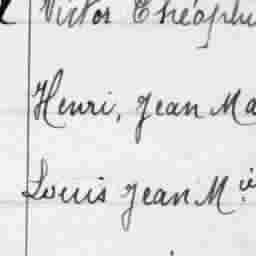 Victor Théophi
Henri, Jean Ma
Louis Jean M.ie